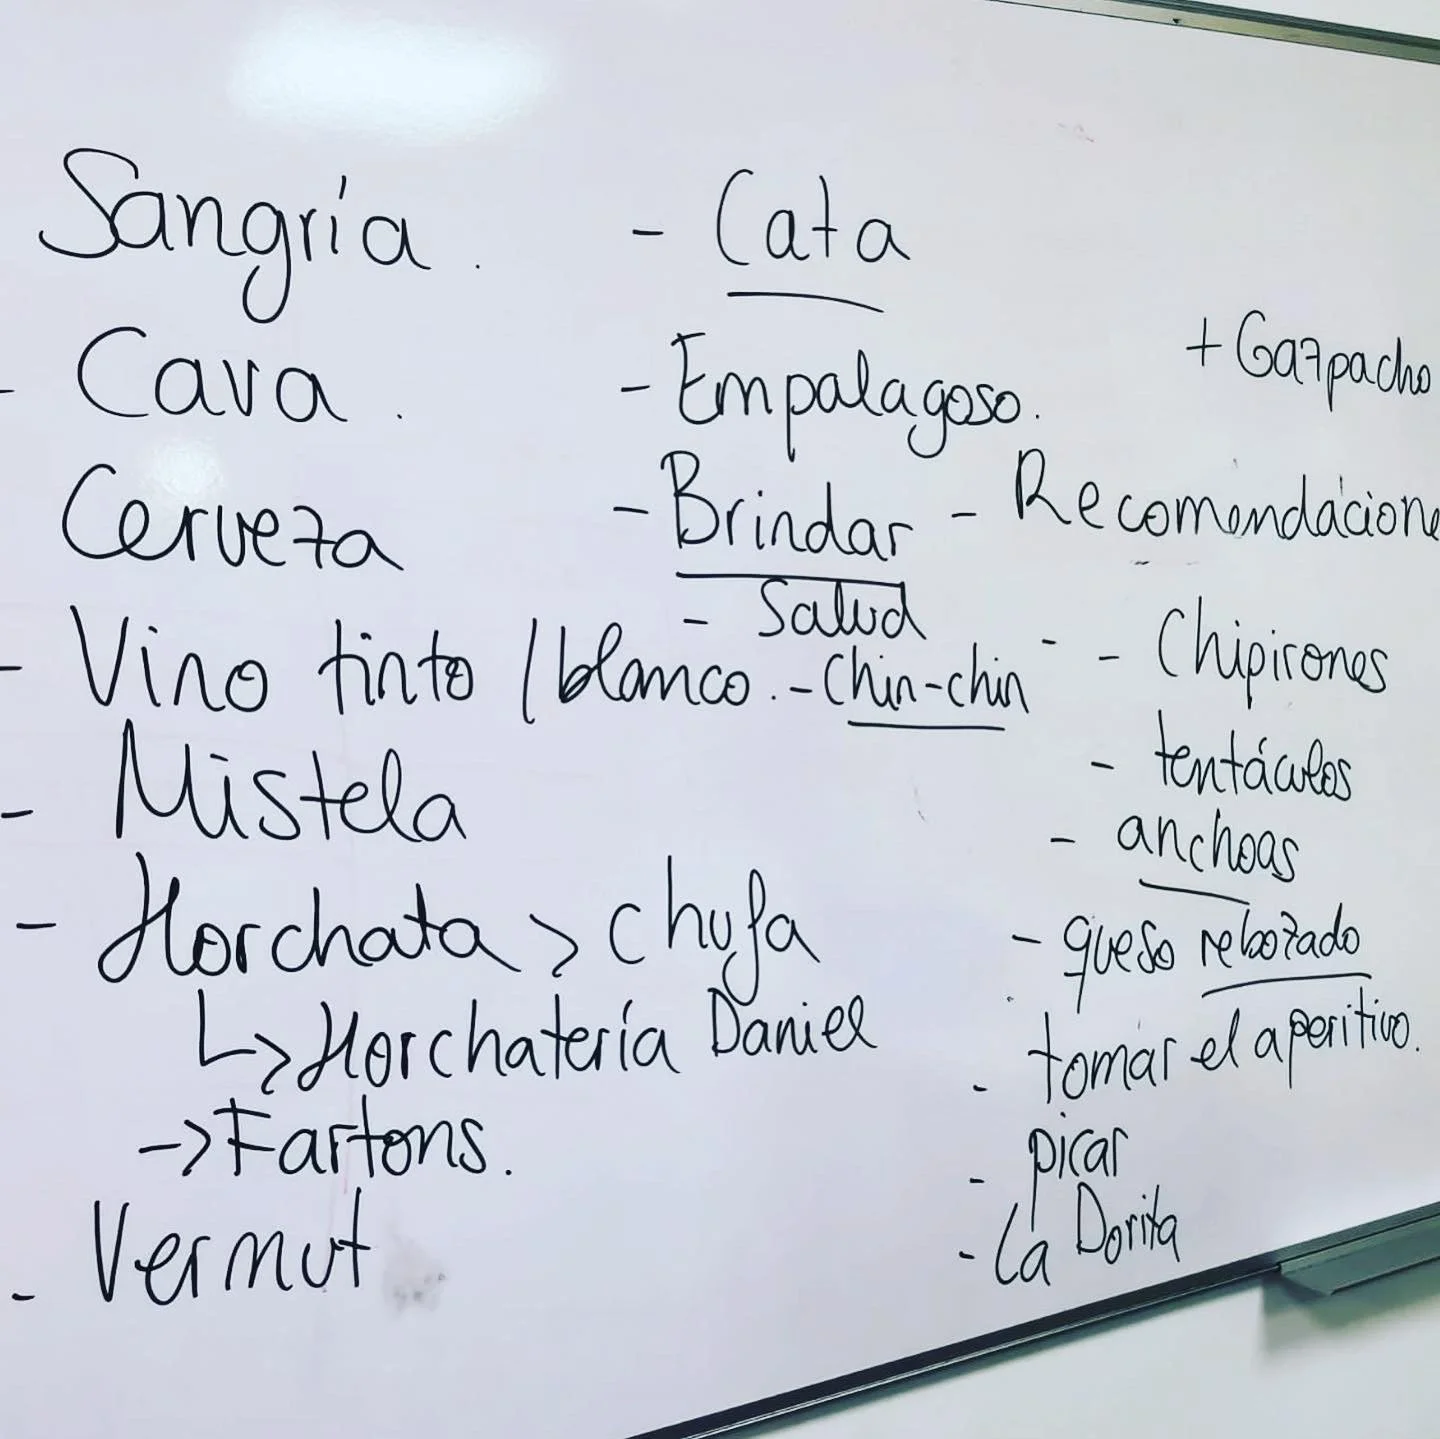 Sangría.
- Cava.
Cerveza
- Vino tinto / blanco.
- Mistela
- Horchata > chufa
↳ Horchatería Daniel
-> Fartons.
- Vermut
- Cata
- Empalagoso.
- Brindar
- Salud
- Chin-chin
+ Gazpacho
- Recomendacione
- Chipirones
- tentáculos
- anchoas
- queso rebozado
- tomar el aperitivo.
- picar
- La Dorita